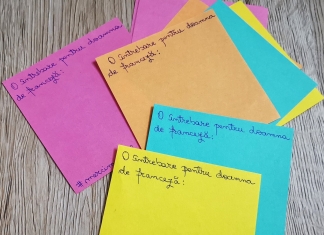 O întrebare pentru doamna
de franceză:
O întrebare pentru doamna
de franceză:
O întrebare pentru doamna
de franceză:
O întrebare pentru doamna
de franceză: